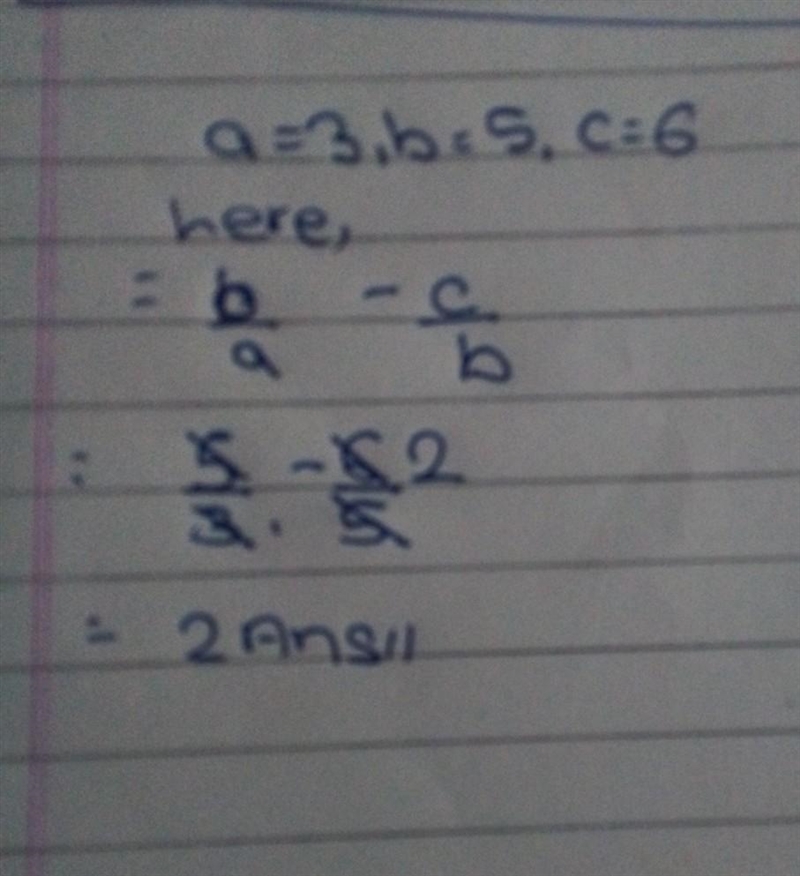 a=3, b=5, c=6
here,
= b/a - c/b
= 5/3 - 6/5 2
= 2 Ans//